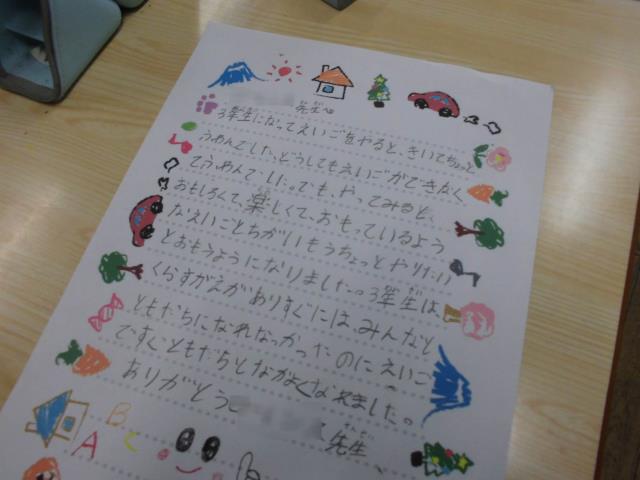 先生へ
3年生になってえいごをやると、きいてちょっと
ふめんでした、どうしてもえいごができなく
てふめんで した。でも、やってみると、
おもしろくて、楽しくて、おもっているよう
なえいごとちがいもうちょっとやりたい
とおもうようになりました。3年生は
くらすがえがありすぐには、みんなと
ともだちになれなっかったのにえいご
ですぐともだちとなかよくなれました。
ありがとう
先生
B
A C